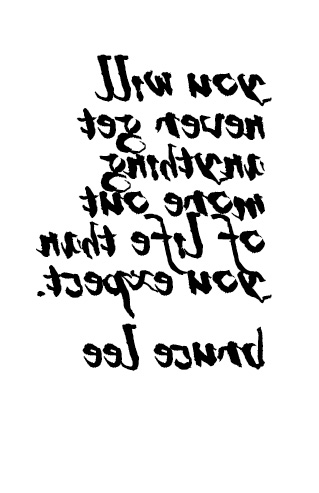 you will
never get
anything
more out
of life than
you expect.
bruce lee